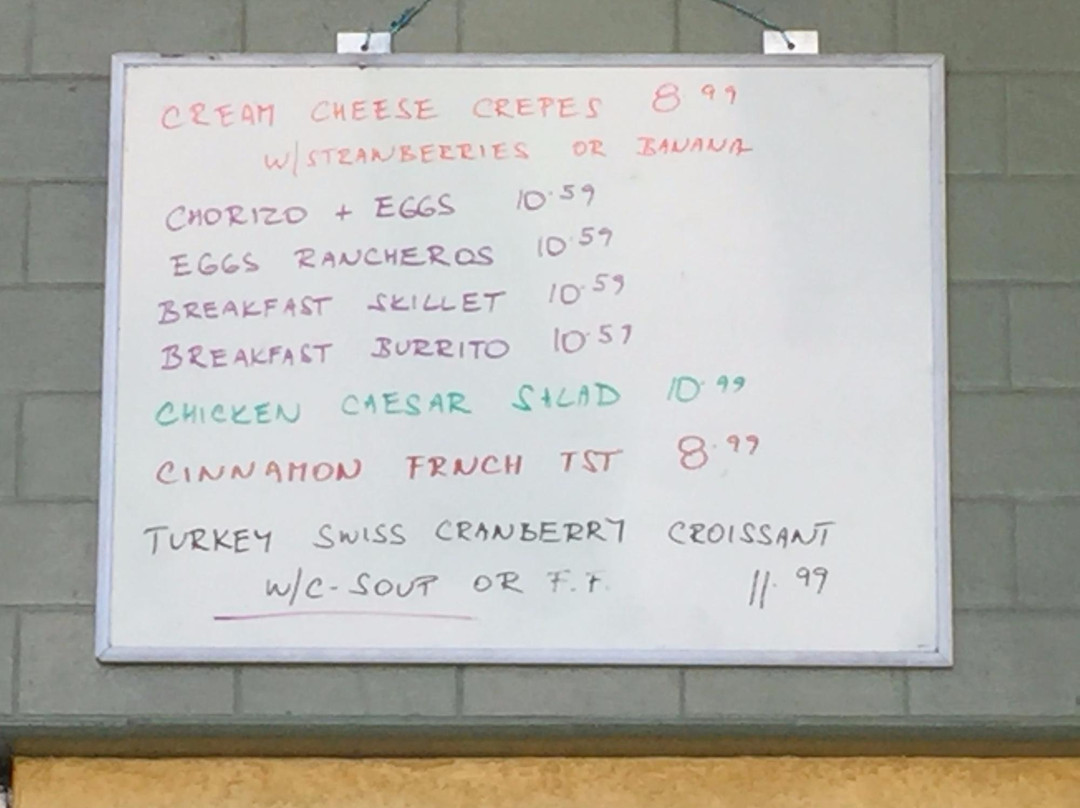 CREAM CHEESE CREPES 8 99
W/STRAWBERRIES OR BANANA
CHORIZO + EGGS 10.59
EGGS RANCHEROS 10.59
BREAKFAST SKILLET 10.59
BREAKFAST BURRITO 10.59
CHICKEN CAESAR SALAD 10.99
CINNAMON FRNCH TST 8.99
TURKEY SWISS CRANBERRY CROISSANT
W/C-SOUP OR F.F. 11.99